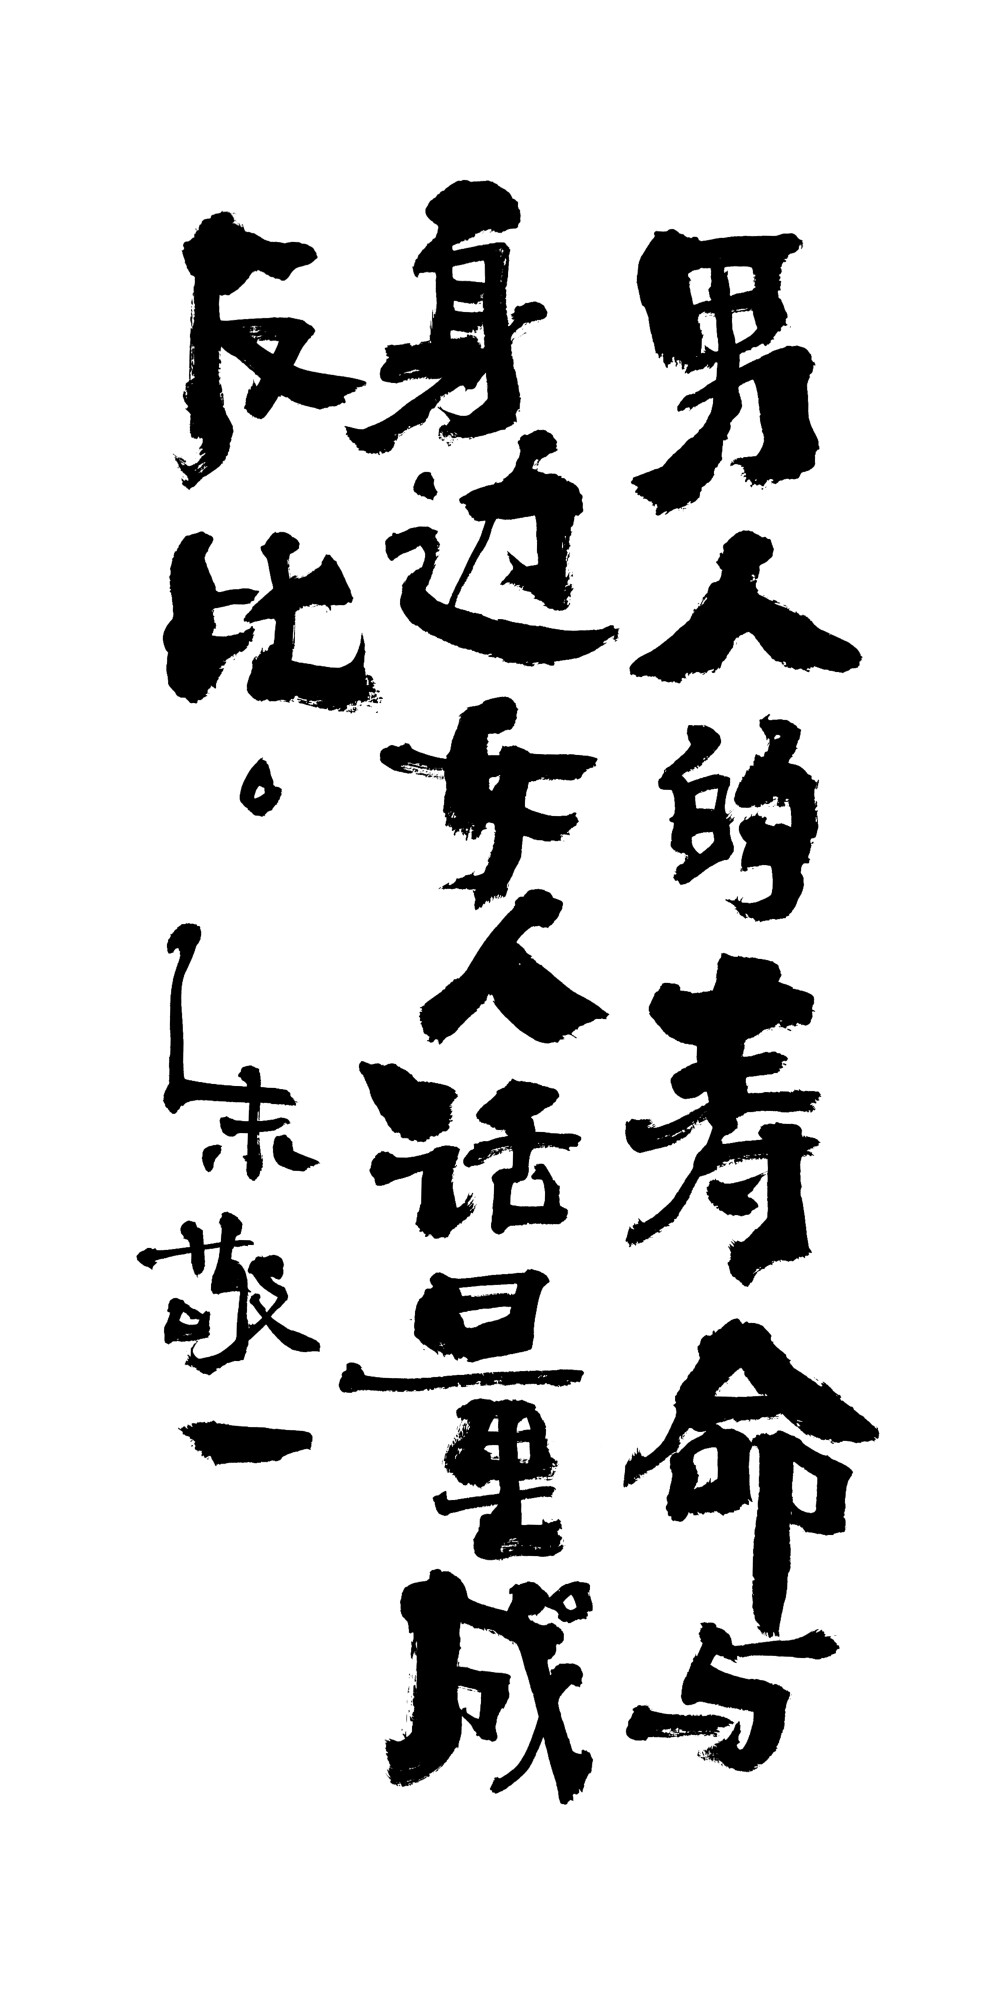 男人的寿命与
身边女人话量成
反比。朱敬一